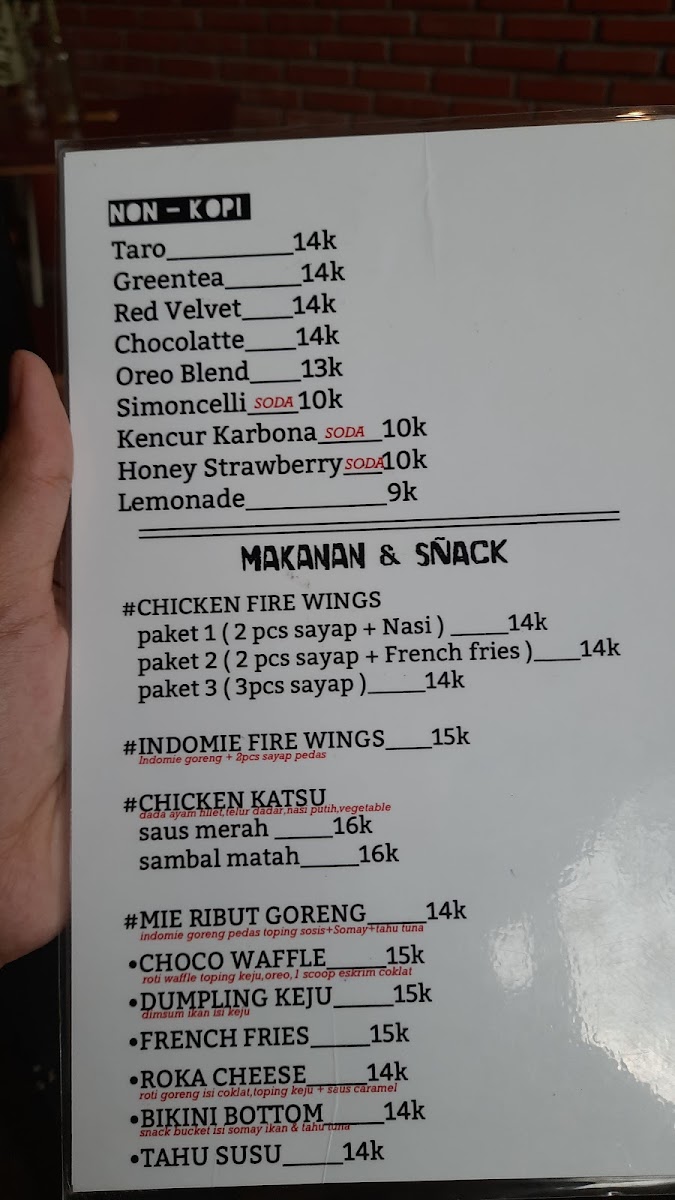 NON - KOPI
Taro__________14k
Greentea______14k
Red Velvet____14k
Chocolatte____14k
Oreo Blend____13k
Simoncelli SODA 10k
Kencur Karbona SODA 10k
Honey Strawberry SODA 10k
Lemonade___________9k
MAKANAN & SÑACK
#CHICKEN FIRE WINGS
paket 1 ( 2 pcs sayap + Nasi ) _____14k
paket 2 ( 2 pcs sayap + French fries )____14k
paket 3 ( 3pcs sayap )_____14k
#INDOMIE FIRE WINGS____15k
Indomie goreng + 2pcs sayap pedas
#CHICKEN KATSU
dada ayam fillet,telur dadar,nasi putih,vegetable
saus merah _____16k
sambal matah_____16k
#MIE RIBUT GORENG_____14k
indomie goreng pedas toping sosis+Somay+tahu tuna
•CHOCO WAFFLE_____15k
roti waffle toping keju,oreo,1 scoop eskrim coklat
•DUMPLING KEJU_____15k
dimsum ikan isi keju
•FRENCH FRIES_____15k
•ROKA CHEESE_____14k
roti goreng isi coklat,toping keju + saus caramel
•BIKINI BOTTOM_____14k
snack bucket isi somay ikan & tahu tuna
•TAHU SUSU_____14k